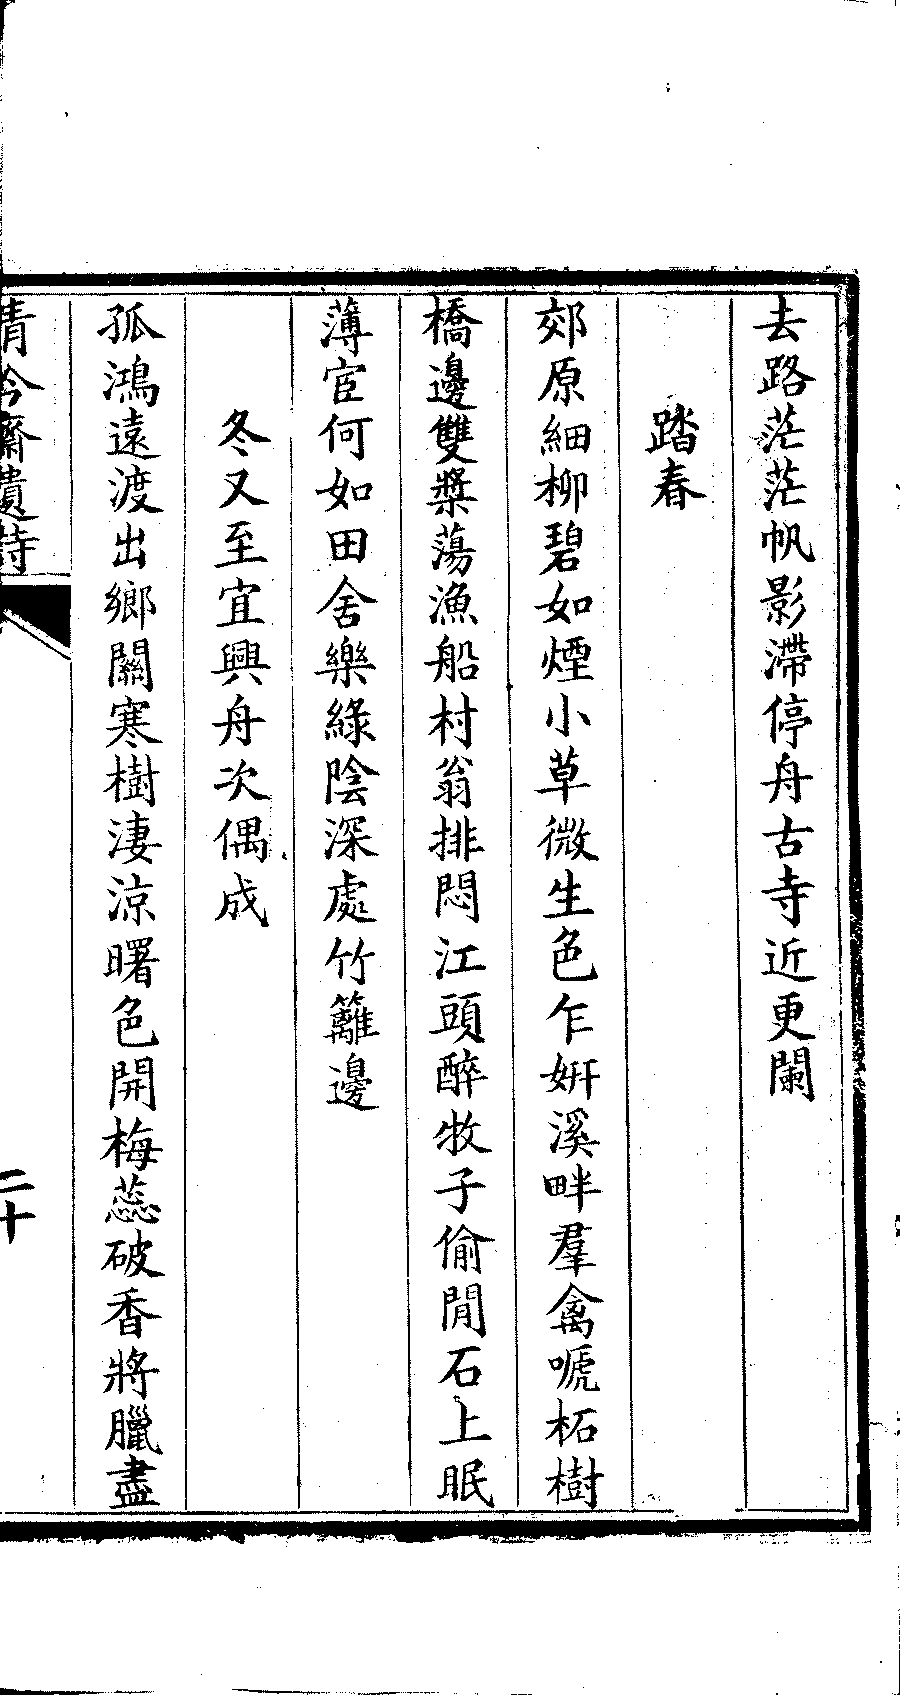 去路茫茫帆影滯停舟古寺近更闌
踏春
郊原細柳碧如煙小草微生色乍妍溪畔羣禽嗁柘樹
橋邊雙槳蕩漁船村翁排悶江頭醉牧子偷閒石上眠
薄宦何如田舍樂綠陰深處竹籬邊
冬又至宜興舟次偶成
孤鴻遠渡出鄉關寒樹淒涼曙色開梅蕊破香將臘盡
清吟齋遺詩
二十